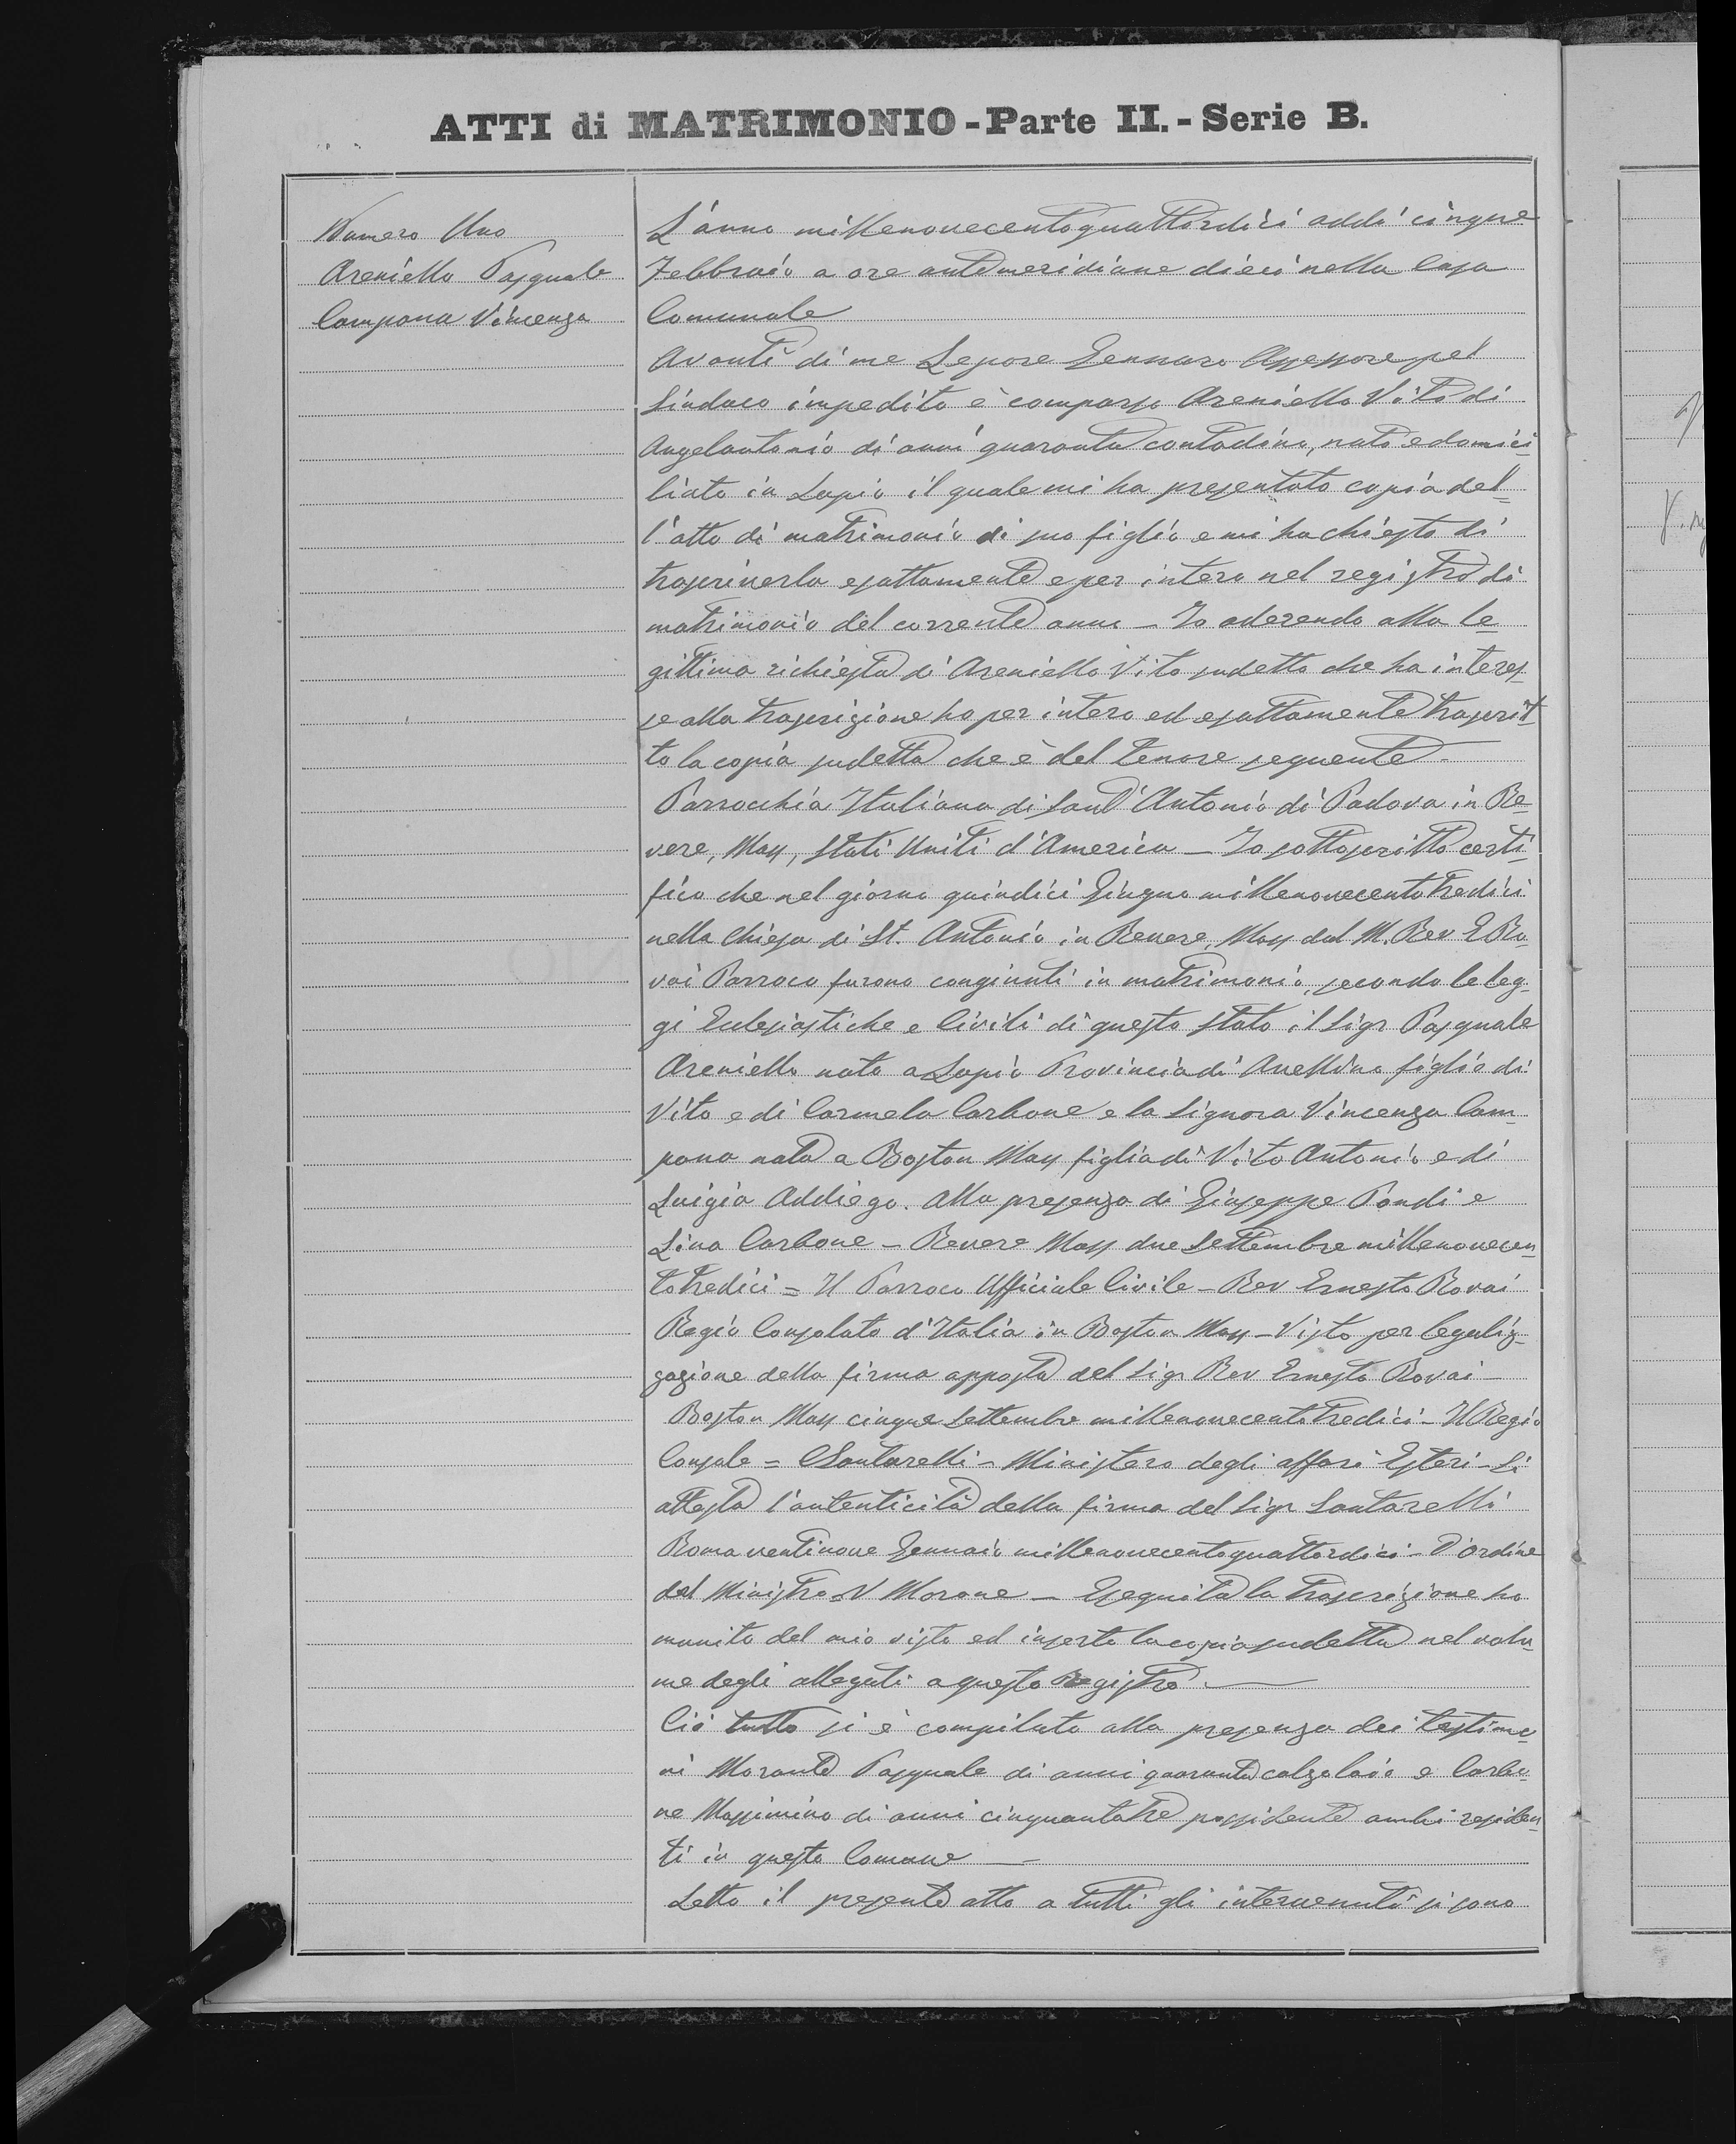 ATTI di MATRIMONIO - Parte II. - Serie B.
Numero Uno
Areniello Pasquale
Campana Vincenza
L'anno millenovecentoquattordici addì cinque
Febbraio a ore antemeridiane dieci nella Casa
Comunale
Avanti di me Lepore Gennaro Assessore pel
Sindaco impedito è comparso Areniello Vito di
Angelantonio di anni quaranta contadino, nato e domici
liato in Lapio il quale mi ha presentato copia del=
l'atto di matrimonio di suo figlio e mi ha chiesto di
trascriverla esattamente e per intero nel registro di
matrimonio del corrente anno - Io aderendo alla le=
gittima richiesta di Areniello Vito sudetto che ha interes=
se alla trascrizione ho per intero ed esattamente trascrit=
to la copia sudetta che è del tenore seguente.
Parrocchia Italiana di Sant'Antonio di Padova in Re=
vere, Mass, Stati Uniti d'America - Io sottoscritto certi=
fico che nel giorno quindici Giugno millenovecentotredici
nella Chiesa di St. Antonio in Revere, Mass dal M. Rev E Ro=
vai Parroco furono congiunti in matrimonio, secondo le leg=
gi Eclesiastiche e Civili di questo stato il Sigr Pasquale
Areniello nato a Lapio Provincia di Avellino figlio di
Vito e di Carmela Carbone e la Signora Vincenza Cam=
pana nata a Boston Mass figlia di Vito Antonio e di
Luigia Addiego. Alla presenza di Giuseppe Pandi e
Lina Carbone - Revere Mass due Settembre millenovecen=
totredici = Il Parroco Ufficiale Civile - Rev Ernesto Rovai
Regio Consolato d'Italia in Boston Mass - Visto per legaliz=
zazione della firma apposta del Sigr Rev Ernesto Rovai -
Boston Mass cinque Settembre millenovecentotredici - Il Regio
Console = Santarelli - Ministero degli affari Esteri - Si
attesta l'autenticità della firma del Sigr Santarelli
Roma ventinove Gennaio millenovecentoquattordici - D'ordine
del Ministro N Morone - Eseguita la trascrizione ho
munito del mio visto ed inserto la copia sudetta nel volu=
me degli allegati a questo Registro.
Ciò tutto si è compilato alla presenza dei testimo=
ni Morante Pasquale di anni quaranta calzolaio e Carbo=
ne Massimino di anni cinquantatre possidente ambi residen=
ti in questo Comune
Letto il presente atto a tutti gli intervenuti si sono